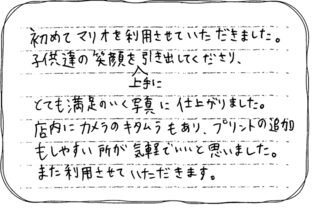 初めてマリオを利用させていただきました。
子供達の笑顔を上手に引き出してくださり、
とても満足のいく写真に仕上がりました。
店内にカメラのキタムラもあり、プリントの追加
もしやすい所が気軽でいいと思いました。
また利用させていただきます。